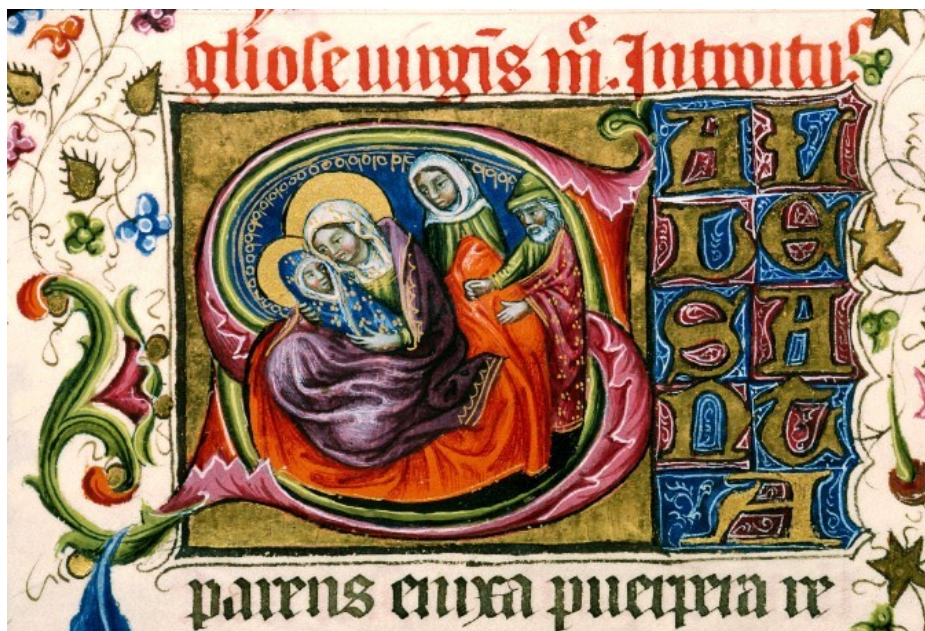 gliose uirgīs m̄. Introitus
S AL
VE
SA
NT
A
parens enixa puerpera re